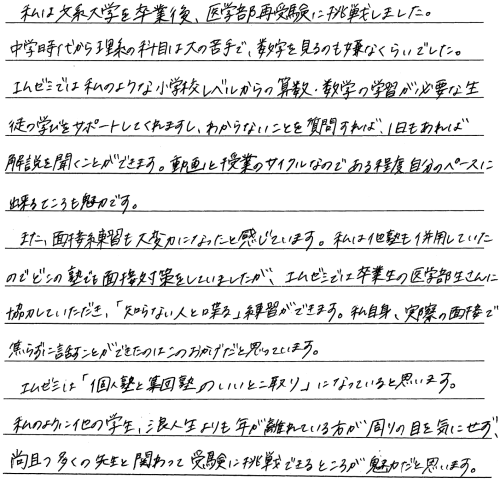 私は文系大学を卒業後、医学部再受験に挑戦しました。
中学時代から理系の科目は大の苦手で、数字を見るのも嫌なくらいでした。
エムゼミでは私のような小学校レベルからの算数・数学の学習が必要な生
徒の学びをサポートしてくれますし、わからないことを質問すれば、1日もあれば
解説を聞くことができます。動画と授業のサイクルなのである程度自分のペースに
出来るところも魅力です。
また、面接練習も大変力になったと感じています。私は他塾も併用していた
のでどこの塾でも面接対策をしていましたが、エムゼミでは卒業生の医学部生さんに
協力していただき、「知らない人と喋る」練習ができます。私自身、実際の面接で
焦らずに話すことができたのはこのおかげだと思っています。
エムゼミは「個人塾と集団塾のいいとこ取り」になっていると思います。
私のように他の学生、浪人生よりも年が離れている方が周りの目を気にせず、
尚且つ多くの先生と関わって受験に挑戦できるところが魅力だと思います。